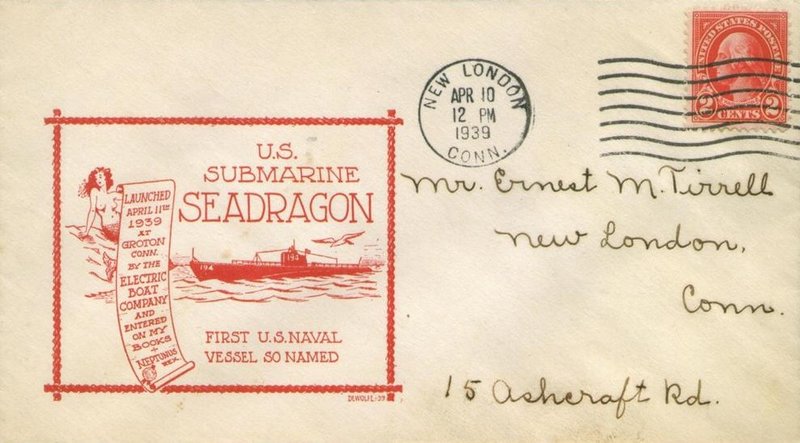 UNITED STATES POSTAGE
2 CENTS 2
NEW LONDON
APR 10
12 PM
1939
CONN.
U.S.
SUBMARINE
SEADRAGON
LAUNCHED
APRIL 11TH
1939
AT
GROTON
CONN.
BY THE
ELECTRIC
BOAT
COMPANY
AND
ENTERED
ON MY
BOOKS
NEPTUNUS
REX.
194
194
FIRST U.S. NAVAL
VESSEL SO NAMED
DEWOLFE-39
Mr. Ernest M. Tirrell
New London,
Conn.
15 Ashcraft Rd.